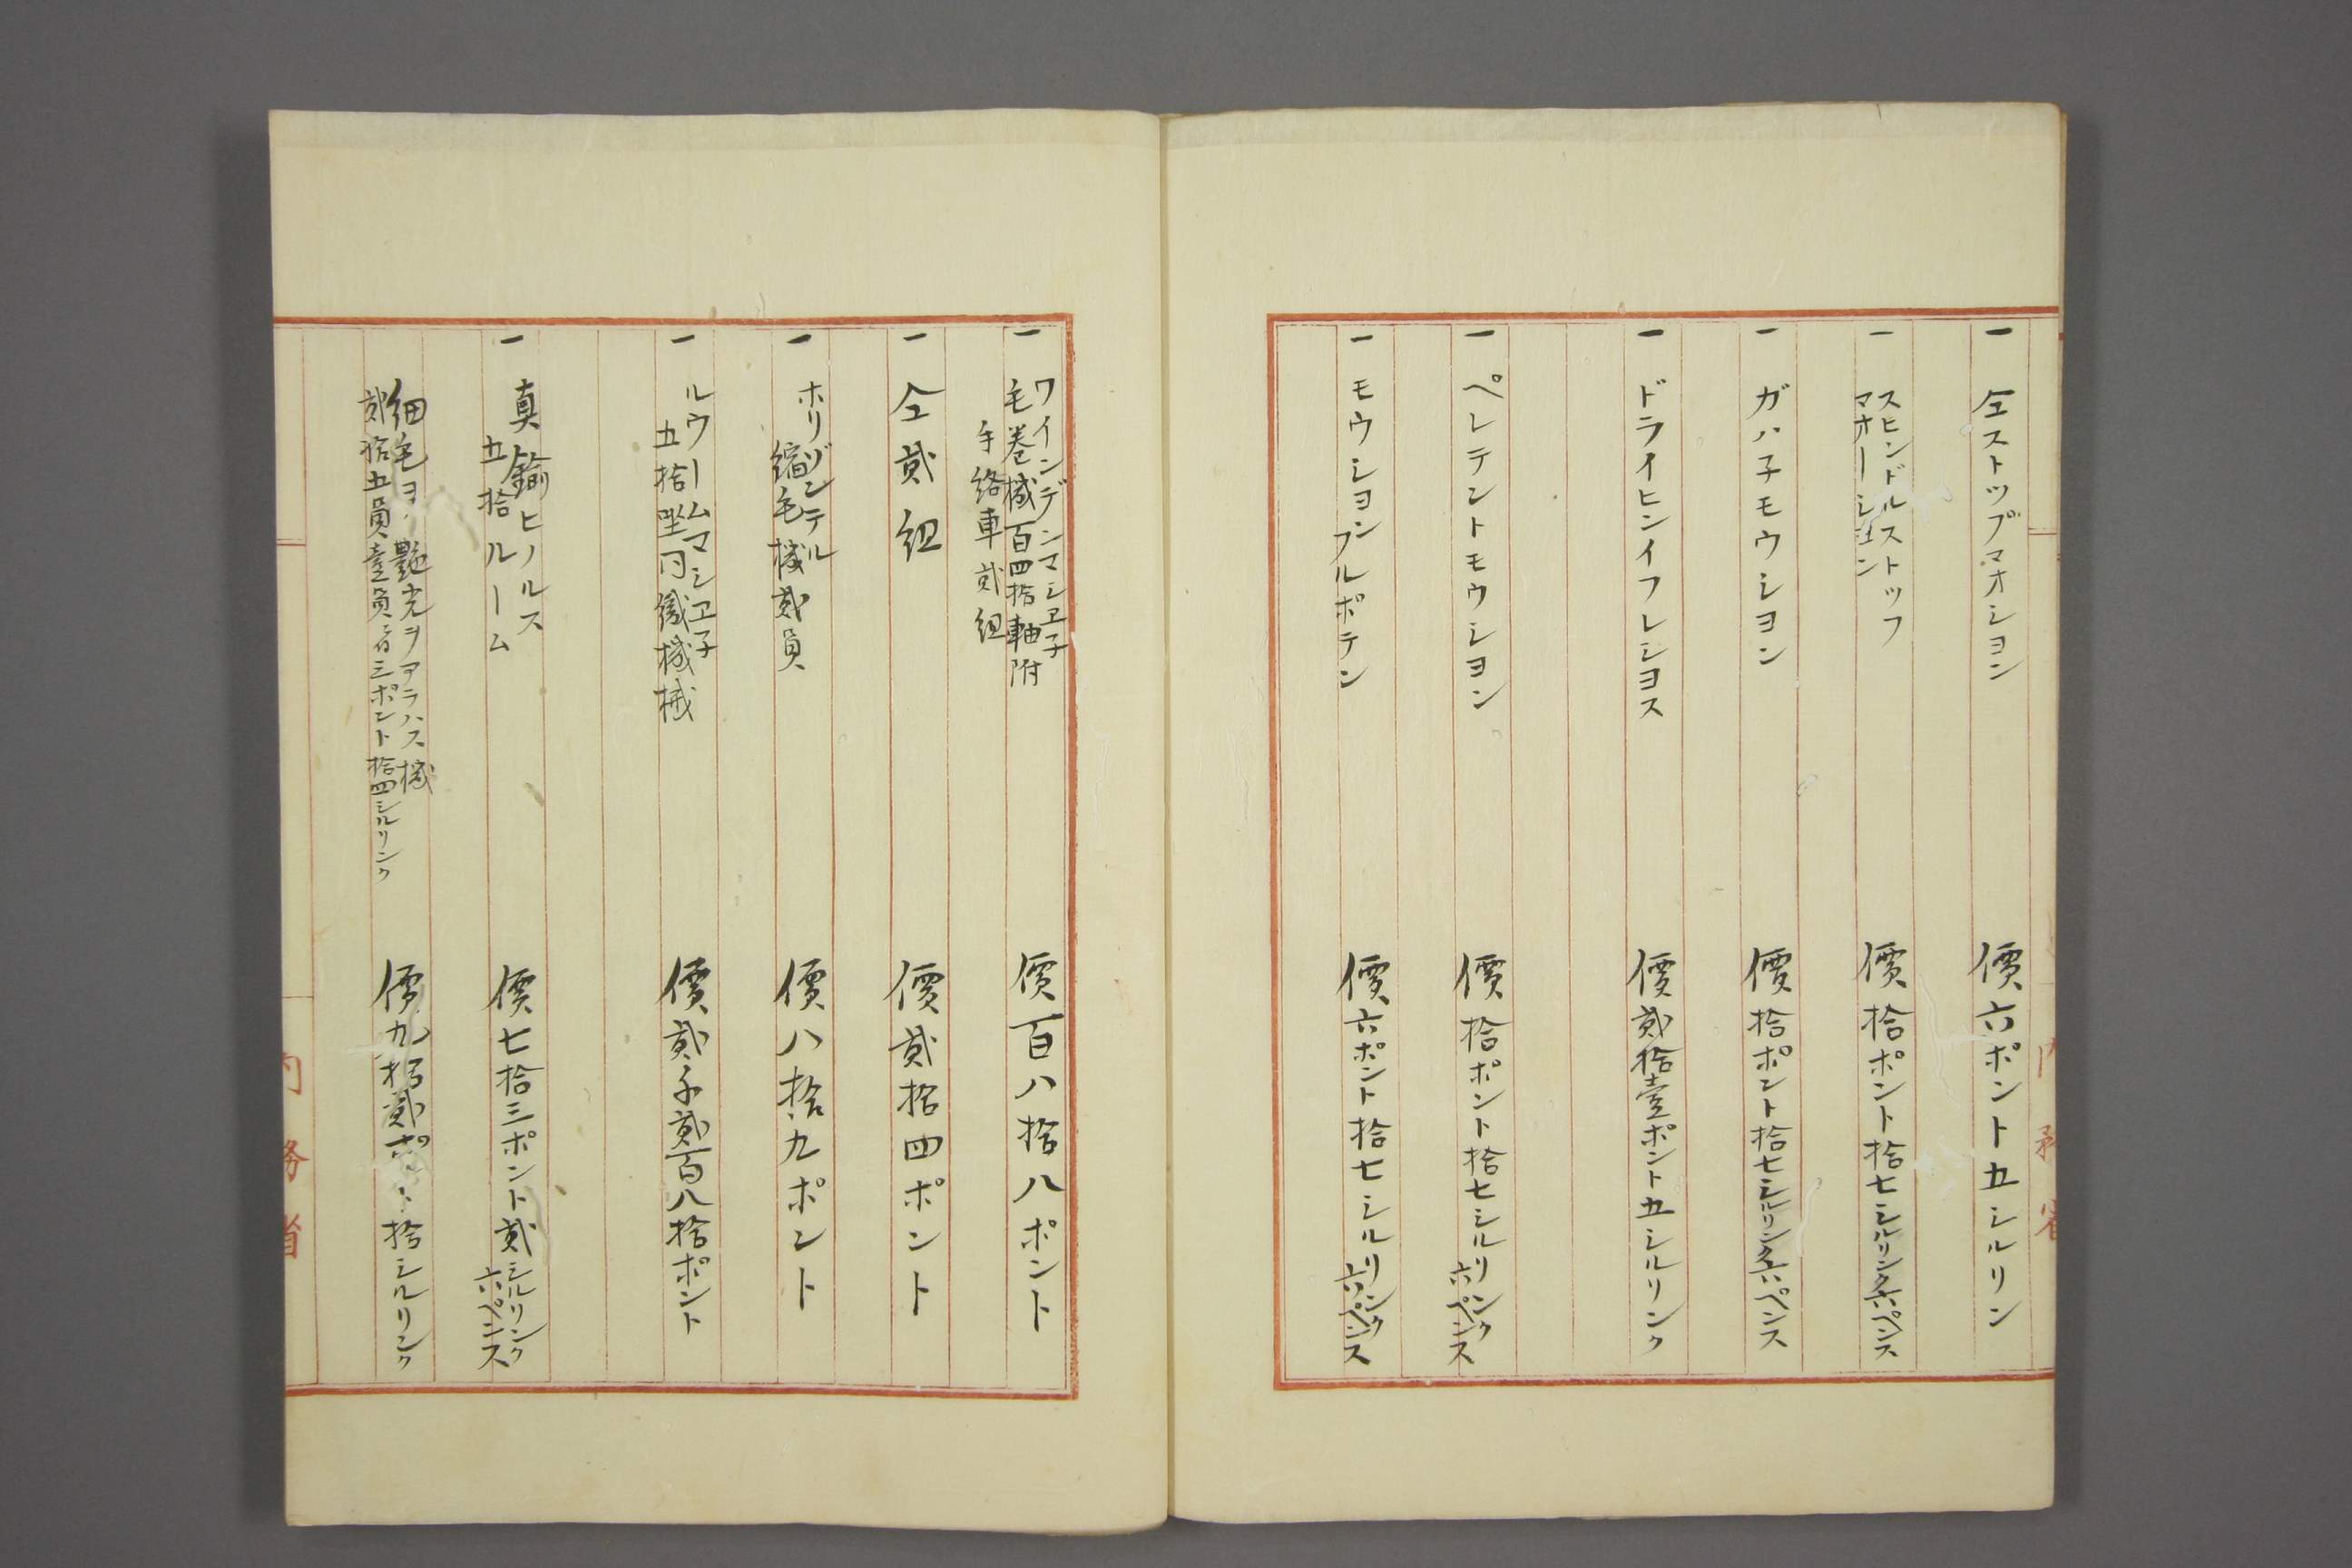 一 仝ストツプマオシヨン 價六ポント五シルリン
一 スヒンドルストツフ
マオーシヨン 價拾ポント拾七シルリンク六ペンス
一 ガハ子モウシヨン 價拾ポント拾七シルリンク六ペンス
一 ドライヒンイフレシヨス 價貳拾壹ポント五シルリンク
一 ペレテントモウシヨン 價拾ポント拾七シルリンク
六ペンス
一 モウシヨンフルポテン 價六ポント拾七シルリンク
六ペンス
一 ワインデンマシヱ子
毛巻械百四拾軸附
手絡車貳組 價百八拾八ポント
一 仝貳組 價貳拾四ポント
一 ホリゾンテル
縮毛械貳員 價八拾九ポント
一 ルウームマシヱ子
五拾坐同織械械 價貳千貳百八拾ポント
一 真鍮ヒノルス
五拾ルーム 價七拾三ポント貳シルリンク
六ペンス
細毛ヨ艶光ヲアラハス械
貳拾五員壹員ニ付三ポント拾四シルリンク 價九拾貳ポント拾シルリンク
内務省